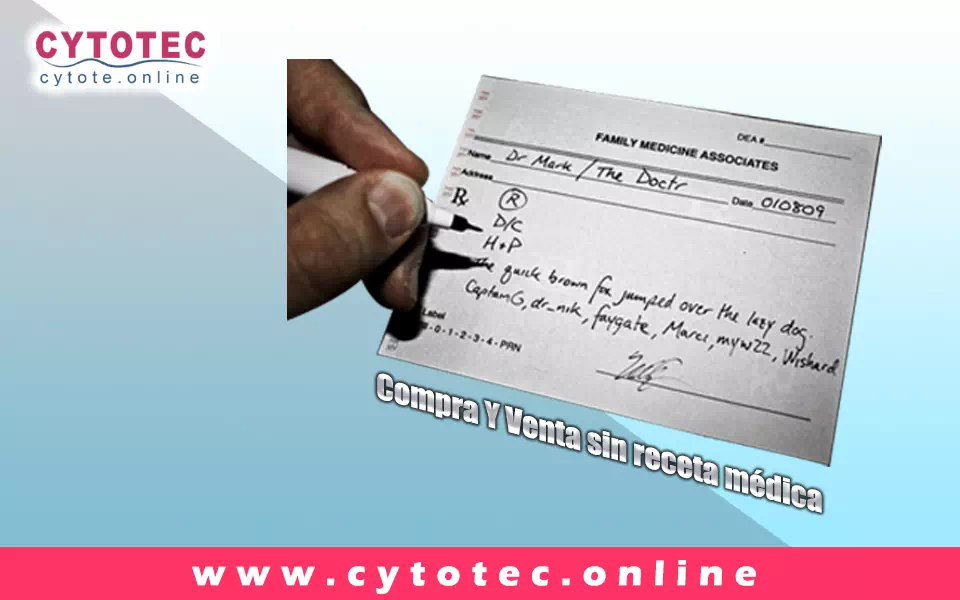 CYTOTEC
cytote.online
DEA #
FAMILY MEDICINE ASSOCIATES
Name Dr Mark / The Doctr
Address
Date 010809
Rx R
D/C
H+P
The quick brown fox jumped over the lazy dog.
CaptainG, dr_nik, faygate, Marci, myw22, Wishard
Label
0-1-2-3-4-PRN
Compra Y Venta sin receta médica
www.cytotec.online